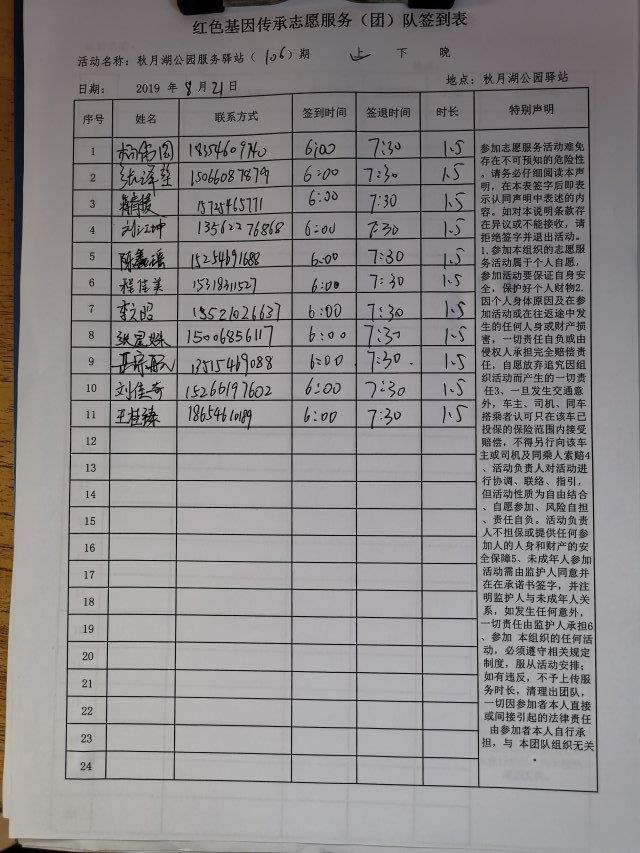 红色基因传承志愿服务（团）队签到表
活动名称：秋月湖公园服务驿站（106）期 上 下 晚
日期： 2019 年 8 月 21 日 地点：秋月湖公园驿站
序号 姓名 联系方式 签到时间 签退时间 时长 特别声明
1 18354609740 6:00 7:30 1.5
2 15066087879 6:00 7:30 1.5
3 15725465771 6:00 7:30 1.5
4 13562276868 6:00 7:30 1.5
5 陈鑫瑶 15254691688 6:00 7:30 1.5
6 程佳美 15318311527 6:00 7:30 1.5
7 李文昭 13521026637 6:00 7:30 1.5
8 15006856117 6:00 7:30 1.5
9 13515469088 6:00 7:30 1.5
10 刘佳奇 15266197602 6:00 7:30 1.5
11 王桂臻 18654610189 6:00 7:30 1.5
12
13
14
15
16
17
18
19
20
21
22
23
24
参加志愿服务活动难免
存在不可预知的危险性
，请务必仔细阅读本声
明，在本表签字后即表
示认同声明中表述的内
容。如对本说明条款存
在异议或不能接收，请
拒绝签字并退出活动。
1.参加本组织的志愿服
务活动属于个人自愿，
参加活动要保证自身安
全，保护好个人财物2.
因个人身体原因及在参
加活动或在往返途中发
生的任何人身或财产损
害，一切责任自负或由
侵权人承担完全赔偿责
任，自愿放弃追究因组
织活动而产生的一切责
任3、一旦发生交通意
外，车主、司机、同车
搭乘者认可只在该车已
投保的保险范围内接受
赔偿，不得另行向该车
主或司机及同乘人索赔4
、活动负责人对活动进
行协调、联络、指引，
但活动性质为自由结合
、自愿参加、风险自担
、责任自负。活动负责
人不担保或提供任何参
加人的人身和财产的安
全保障5、未成年人参加
活动需由监护人同意并
在在承诺书签字，并注
明监护人与未成年人关
系，如发生任何意外，
一切责任由监护人承担6
、参加 本组织的任何活
动，必须遵守相关规定
制度，服从活动安排；
如有违反，不予上传服
务时长，清理出团队，
一切因参加者本人直接
或间接引起的法律责任
由参加者本人自行承
担，与 本团队组织无关
。